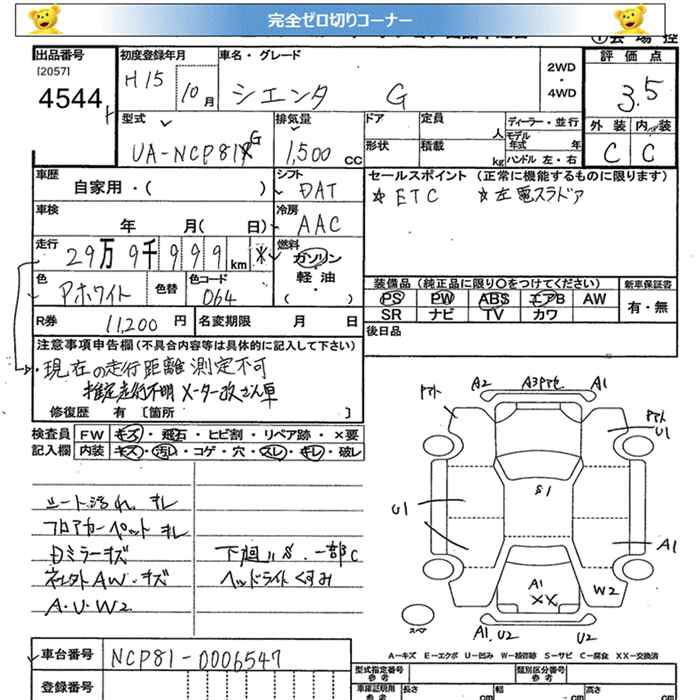 完全ゼロ切りコーナー
出品番号
[2057]
4544
初度登録年月
H15 10月
車名・グレード
シエンタ G
2WD
・
4WD
評価点
3.5
外装 内装
C C
型式
UA-NCP81 G
排気量
1,500 cc
ドア 定員 人
形状 積載 kg
ディーラー・並行
モデル年式 年
ハンドル 左・右
車歴
自家用・( )
シフト
DAT
セールスポイント (正常に機能するものに限ります)
☆ETC ☆左電スラドア
車検
年 月( 日)
冷房
AAC
走行
29万9千999km *
燃料
ガソリン
軽油
・
( )
色
Pホワイト
色替
色コード
064
装備品 (純正品に限り○をつけてください)
PS PW ABS エアB AW
SR ナビ TV カワ
新車保証書
有・無
R券 11,200円
名変期限 月 日
後日品
注意事項申告欄(不具合内容等は具体的に記入して下さい)
・現在の走行距離測定不可
推定走行不明 メーター改ざん車
修復歴 有 [箇所 ]
検査員
記入欄
FW キズ・飛石・ヒビ割・リペア跡・×要
内装 キズ・汚れ・コゲ・穴・スレ・キレ・破レ
シート汚れ、キレ
フロアカーペット キレ
Dミラーキズ
AW、キズ
A・U・W2
下廻りS、一部C
ヘッドライトくすみ
A2 A1
U1
S1
U1
A1
A1
XX
W2
A1,U2 U2
A-キズ E-エクボ U-凹み W-補修跡 S-サビ C-腐食 XX-交換済
車台番号
NCP81-0006547
登録番号
型式指定番号
参考
類別区分番号
参考
車庫証明用
参考
長さ cm
幅 cm
高さ cm